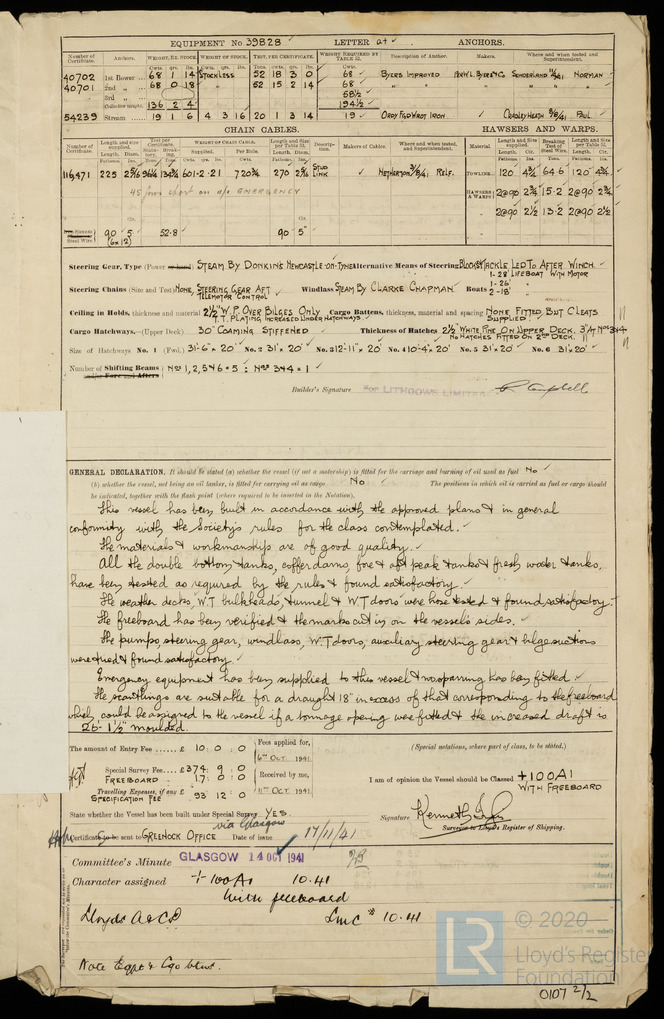 EQUIPMENT No 39828 LETTER at ANCHORS.
Number of Certificate. Anchors. Weight, Ex. Stock. Weight of Stock. Test, per Certificate. Weight Required by Table 53. Description of Anchor. Makers. Where and when tested and Superintendent.
Cwts. qrs. lbs. Cwts. qrs. lbs. Tons. cwts. qrs. lbs. Cwts.
40702 1st Bower 68 1 14 Stockless 52 18 3 0 68 Byers Improved Sunderland Norman
40701 2nd " 68 0 18 52 15 2 14 68
3rd " 58½
Collective weight 136 2 4 194½
54239 Stream 19 1 6 4 3 16 20 1 3 14 19 Ordy Fgd Wrot Iron Cradley Heath 9/8/41 Paul
CHAIN CABLES. HAWSERS AND WARPS.
116471 225 601-2-21 720¾ 270 Stud Link Netherton Relf.
Towline 120 4¾ 64·6 120 4¾
45 fms short on a/c EMERGENCY
Hawsers & Warps 2@90 2¾ 15·2 2@90 2¾
" 2@90 2½ 13·2 2@90 2½
Steel Wire 90 5 (6x12) 52·8 90 5"
Steering Gear, Type (Power or hand) STEAM BY DONKINS NEWCASTLE-ON-TYNE Alternative Means of Steering BLOCK & TACKLE LED TO AFTER WINCH.
Steering Chains (Size and Test) NONE, STEERING GEAR AFT TELEMOTOR CONTROL Windlass STEAM BY CLARKE CHAPMAN Boats 1-28' LIFEBOAT WITH MOTOR 1-26' 2-18'
Ceiling in Holds, thickness and material 2½" W.P. OVER BILGES ONLY T.T. PLATING INCREASED UNDER HATCHWAYS Cargo Battens, thickness, material and spacing NONE FITTED, BUT CLEATS SUPPLIED.
Cargo Hatchways. (Upper Deck) 30" COAMING STIFFENED Thickness of Hatches 2½" WHITE PINE ON UPPER DECK. 3" AT Nos 3&4
NO HATCHES FITTED ON 2ND DECK.
Size of Hatchways No. 1 (Fwd.) 31'-6" x 20' No. 2 31' x 20' No. 3 12'-11" x 20' No. 4 10'-4" x 20' No. 5 31' x 20' No. 6 31' x 20'
Number of Shifting Beams and/or Fore and Afters Nos 1, 2, 5 & 6 = 5 : Nos 3 & 4 = 1
Builder's Signature FOR LITHGOWS LIMITED Campbell
GENERAL DECLARATION. It should be stated (a) whether the vessel (if not a motorship) is fitted for the carriage and burning of oil used as fuel No
(b) whether the vessel, not being an oil tanker, is fitted for carrying oil as cargo No The positions in which oil is carried as fuel or cargo should
be indicated, together with the flash point (where required to be inserted in the Notation).
This vessel has been built in accordance with the approved plans & in general
conformity with the Society's rules for the class contemplated.
The materials & workmanship are of good quality.
All the double bottom tanks, cofferdams, fore & aft peak tanks & fresh water tanks,
have been tested as required by the rules & found satisfactory.
The weather decks, W.T. bulkheads, tunnel & W.T doors were hose tested & found satisfactory.
The freeboard has been verified & the marks cut in on the vessel's sides.
The pumps, steering gear, windlass, W.T doors, auxiliary steering gear & bilge suctions
were tried & found satisfactory.
Emergency equipment has been supplied to this vessel & no sparring has been fitted.
The scantlings are suitable for a draught 18" in excess of that corresponding to the freeboard
which could be assigned to the vessel if a tonnage opening were fitted & the increased draft is
26'-1½" moulded.
The amount of Entry Fee £ 10 : 0 : 0 Fees applied for, 6th OCT. 1941
Special Survey Fee £374 : 9 : 0
FREEBOARD 17 : 0 : 0 Received by me,
Travelling Expenses, if any £ 93 : 12 : 0 11th OCT. 1941
SPECIFICATION FEE
(Special notations, where part of class, to be stated.)
I am of opinion the Vessel should be Classed +100A1
WITH FREEBOARD
State whether the Vessel has been built under Special Survey YES.
Signature Kenneth
Surveyor to Lloyd's Register of Shipping.
via Glasgow
Certificate to be sent to GREENOCK OFFICE Date of issue 17/11/41
Committee's Minute GLASGOW 14 OCT 1941
Character assigned + 100A1 10.41
With freeboard
Lloyds A & C.P. LMC 10.41
Note Eqpt &
© 2020
LR Lloyd's Register Foundation
0107 2/2